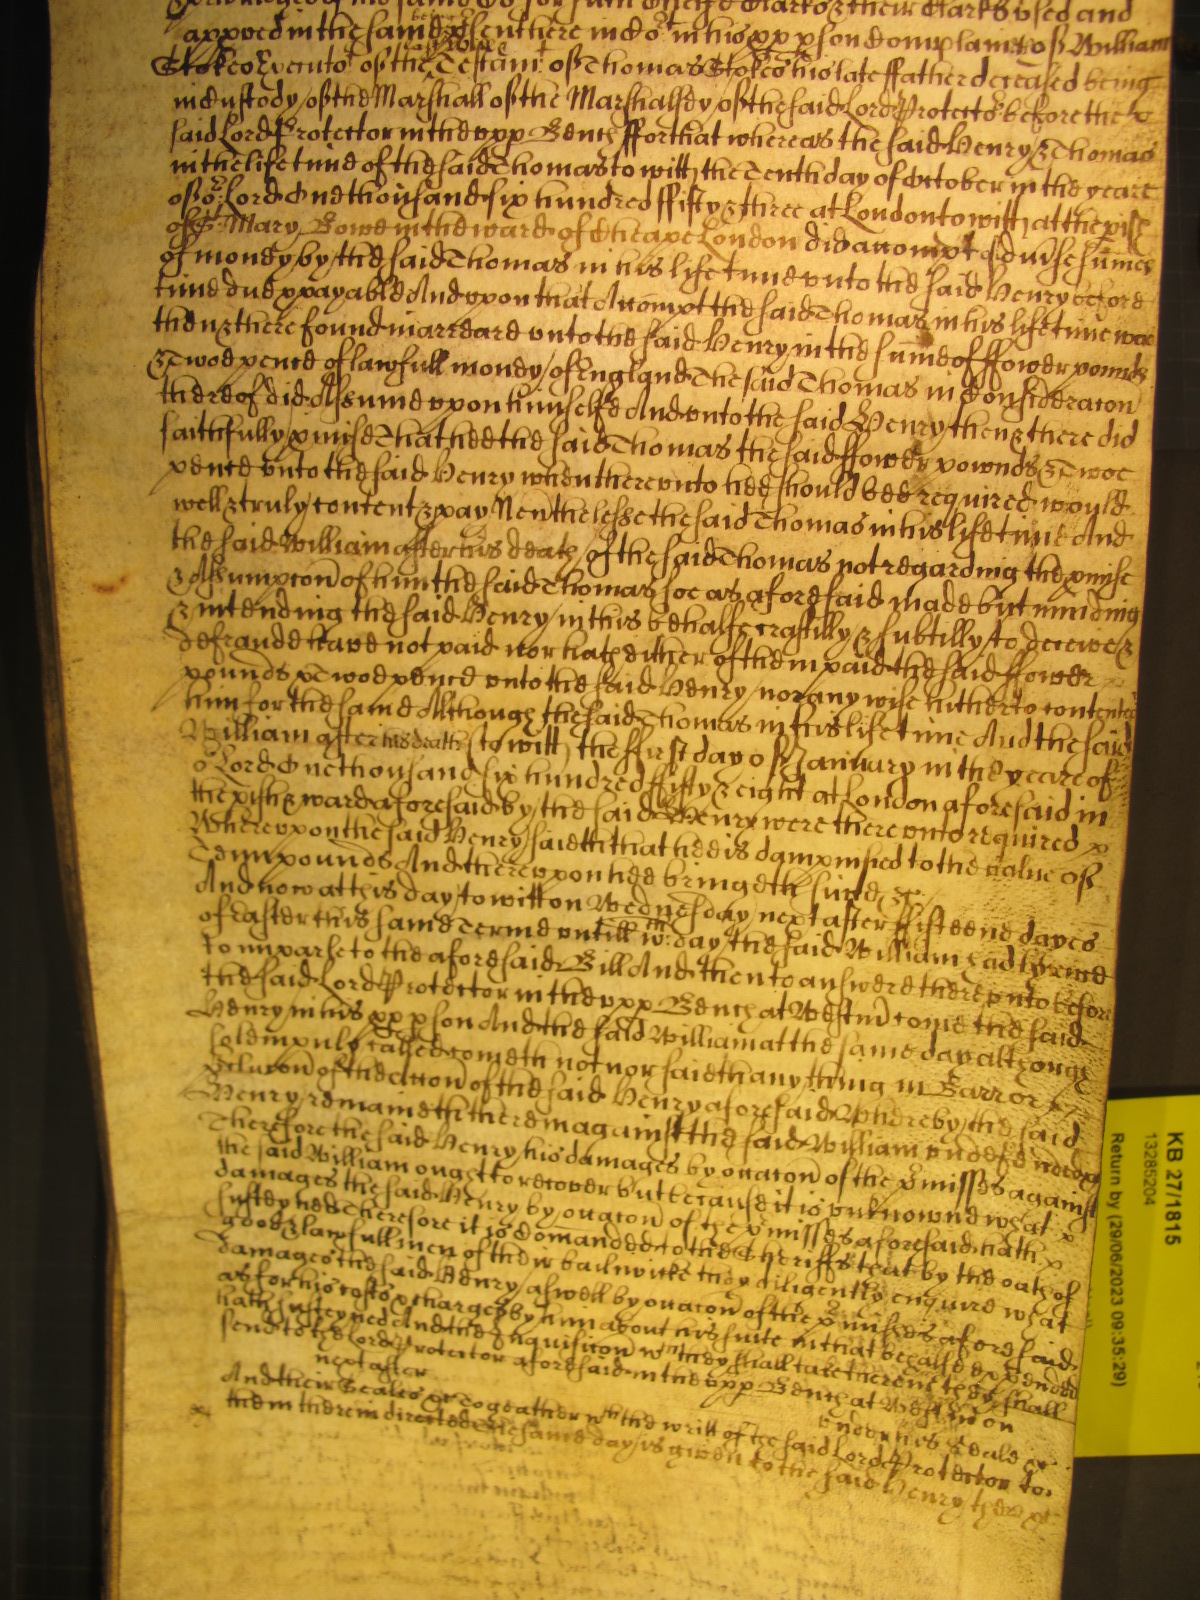 priviledges of the same Co for such Cheife Clarks & their Clarks vsed and
approved in the same psent here in Cot in his ppp pson Complaines of William
Stokes Executor of the Testam: of Thomas Stokes his late ffather deceased being
in Custody of the Marshall of the Marshalsey of the said Lord Protector before the
said Lord Protector in the vpp Bench ffor that whereas the said Henry & Thomas
in the life time of the said Thomas to witt the Tenth day of October in the yeare
of or: Lord One thousand six hundred ffifty & three at London to witt at the pish
of St Mary Bowe in the ward of Cheape London did accompt of divse sumes
of money by the said Thomas in his life time vnto the said Henry before that
time due & payable And vpon that Accompt the said Thomas in his life time was
then & there found in arreare vnto the said Henry in the sume of ffower pounds
& Twoe pence of lawfull money of England The said Thomas in Consideracon
thereof did Assume vpon himselfe And vnto the said Henry then & there did
faithfully pmise That hee the said Thomas the said ffower pownds & Twoe
pence vnto the said Henry when therevnto hee should bee required would
well & truly content & pay Nevthelesse the said Thomas in his life time And
the said William after his death of the said Thomas not regarding the pmise
& Assumpcon of him the said Thomas soe as aforesaid made but minding
& intending the said Henry in this behalfe craftilly & subtilly to deceive &
defraude have not paid nor hath either of them paid the said ffower
pounds & Twoe pence vnto the said Henry nor any wise hitherto contented
him for the same Although the said Thomas in his life time And the said
William after his death to witt the ffirst day of January in the yeare of
or Lord One thousand six hundred ffifty & eight at London aforesaid in
the pish & ward aforesaid by the said Henry were there vnto required
Wherevpon the said Henry saieth that hee is dampnified to the value of
Tenn pounds And there vpon hee bringeth suite &c
And now att this day to witt on Wednesday next after ffifteene dayes
of Easter this same Terme vntill wch day the said William had lycence
to imparle to the aforesaid Bill And then to answere there vnto before
the said Lord Protector in the vpp Bench at Westm come the said
Henry in his ppp pson And the said William at the same day although
solempnly called cometh not nor saieth any thing in Barr or
pclucon of the accon of the said Henry aforesaid Whereby the said
Henry remaineth therein against the said William vndefended
Therefore the said Henry his damages by occacon of the pmisses against
the said William ought to recover but because it is vnknowne what
damages the said Henry by occacon of the pmisses aforesaid hath
susteyned Therefore it is Comanded to the Sheriffs that by the oath of
good & lawfull men of their bailiwicke they diligently enquire what
damages the said Henry aswell by occacon of the pmisses aforesaid
as for his costs & charges by him about his suite in that behalfe expended
hath susteyned And the Inquisicon wch they shall take therein they shall
send to the Lord Protector aforesaid in the vpp Bench at Westm on
next after vnder his Seale &c
And their Seales &c Togeather wth the writt of the said Lord Protector to
them therein directed The same day is given to the said Henry there &c
KB 27/1815
13285204
Return by (29/06/2023 09:35:29)